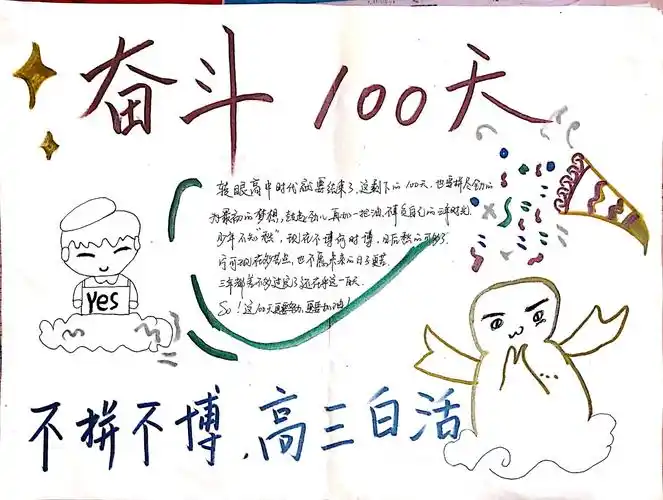 奋斗100天
转眼高中时代就要结束了,这剩下的100天,也要拼尽全力的
为最初的梦想,鼓起劲儿,再加一把油,得自己的三年时光.
少年不知"愁",现在不博何时博,日后愁的可多了.
宁可现在吃苦,也不愿未来的日子更苦
三年都差不多过完了还在乎这一百天.
So!这100天更要努力,更要加油!
yes
不拼不博,高三白活